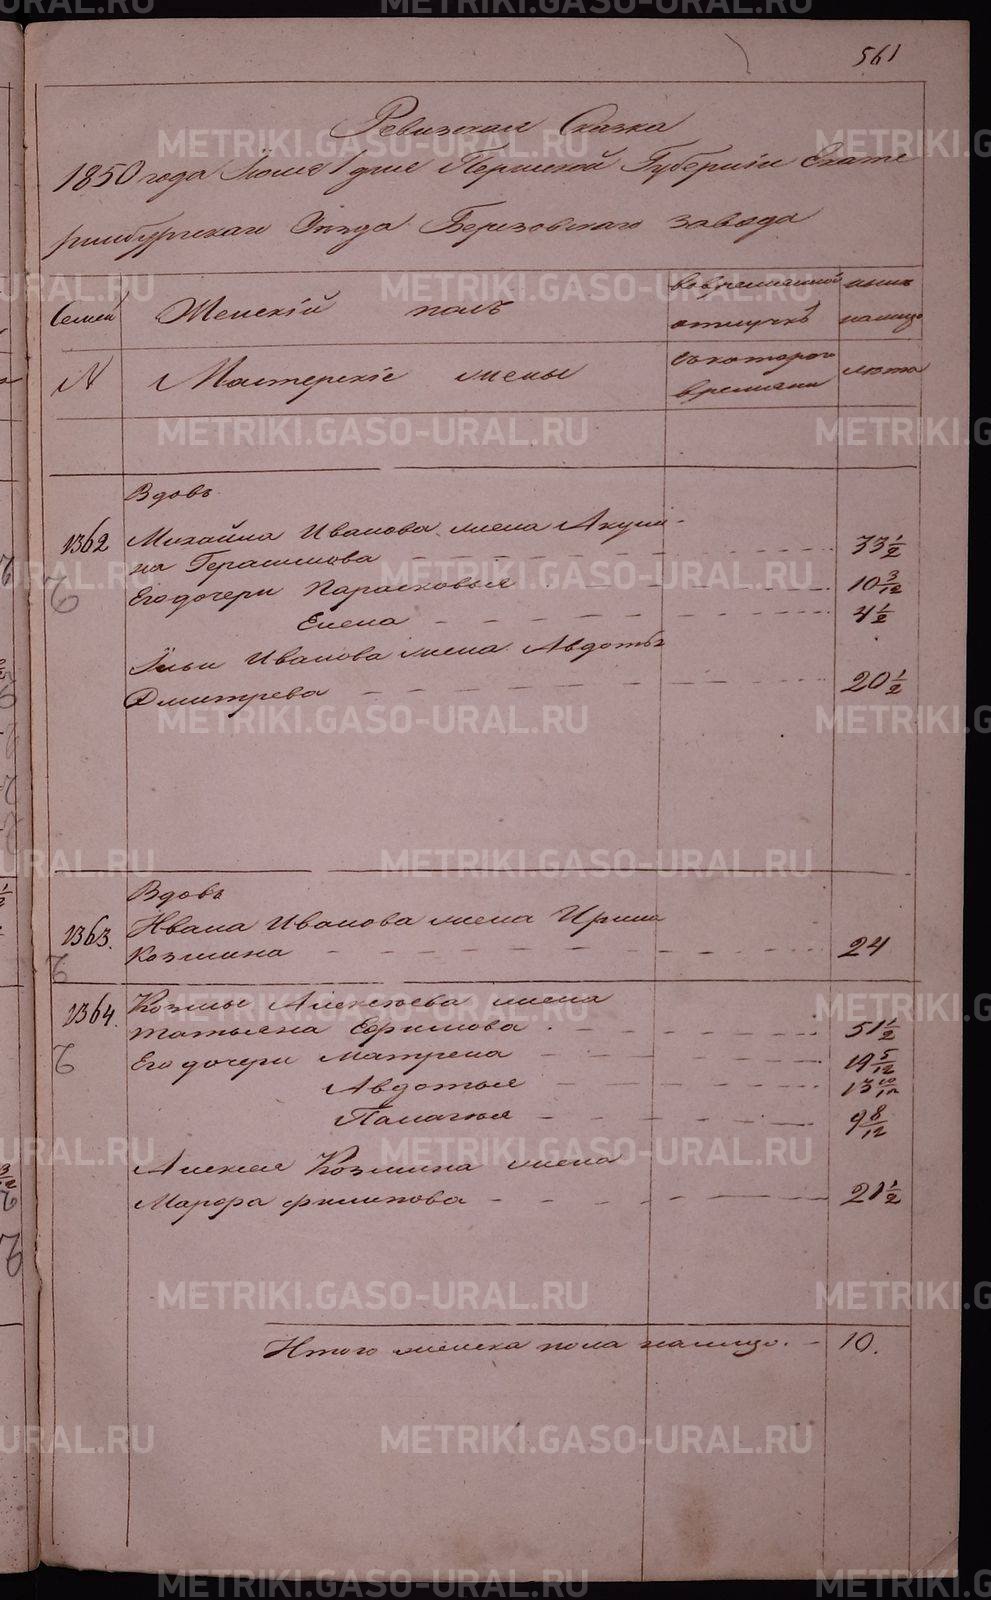 561
Ревизская Сказка
1850 года Июля 1 дня Пермской Губернiи Екате
ринбургскаго Уезда Березовскаго завода
Семей Женскiй полъ вовременной отлучкѣ ныне налицо
N Мастерскiе жены съкотораго времяни лета
Вдовъ
1362 Михайла Иванова жена Акули-
на Герасимова 33 1/2
Его дочери Парасковья 10 3/12
Елена 4 1/2
Ильи Иванова жена Авдотья
Дмитрева 20 1/2
Вдовъ
1363. Ивана Иванова жена Ирина
Козмина 24
1364. Козмы Алексѣева жена
Татьяна Ефимова 51 1/2
Его дочери Матрена 19 5/12
Авдотья 13 10/12
Палагея 9 8/12
Алексея Козмина жена
Марфа филипова 21 1/2
Итого женска пола налицо. 10.
METRIKI.GASO-URAL.RU